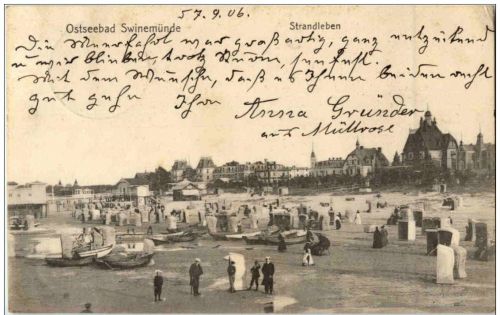 57.9.06.
Ostseebad Swinemünde Strandleben
Die Meerfahrt war großartig, ganz entzückend
u. wir blieben, trotz Sturm, seefest.
Mit dem Wunsche, daß es Ihnen beiden recht
gut gehe Ihre Anna Gründer
aus Müllrose